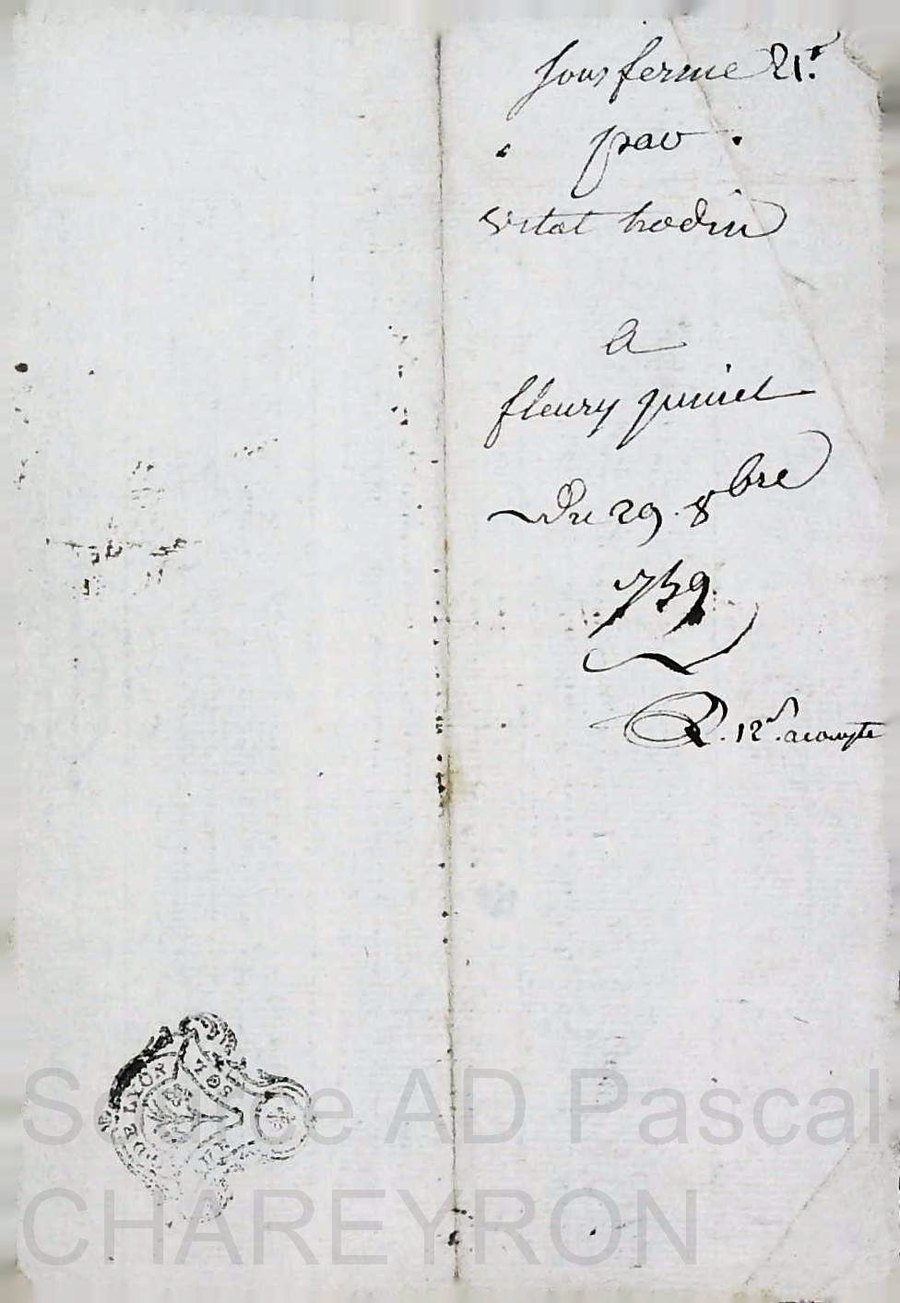 sous ferme 21.#
par
vital hodin
A
fleury juinet
Du 29 8bre
1739
R. 12# acompte
DE LYON
SOLS
Source AD Pascal
CHAREYRON